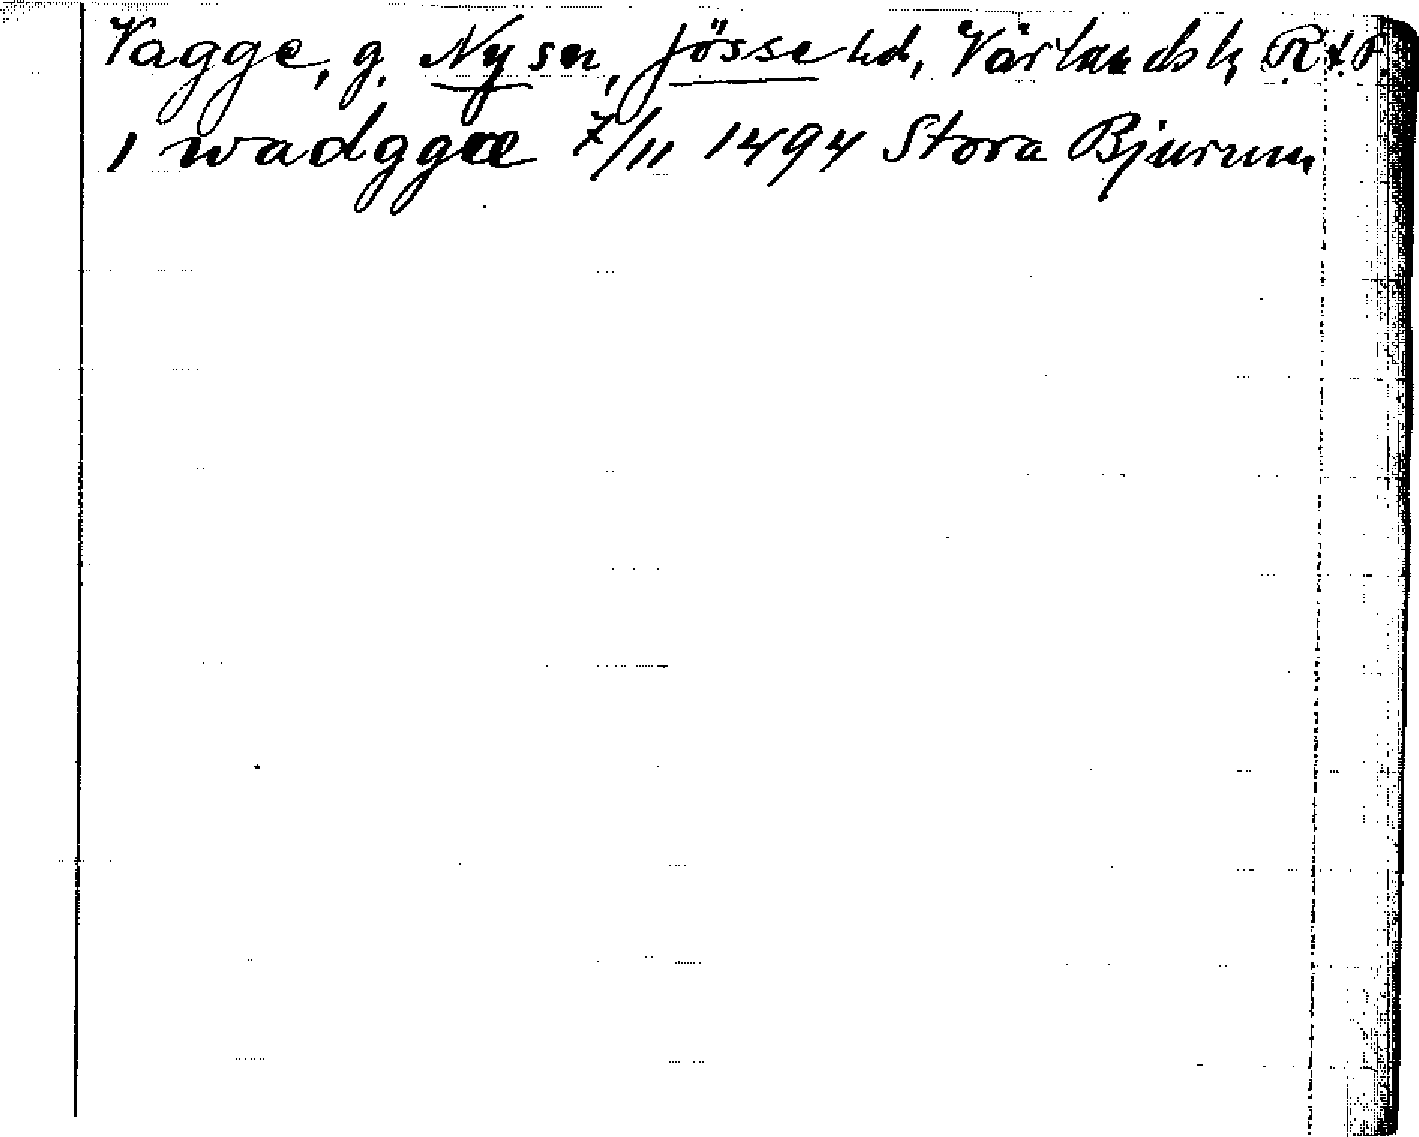 Vagge, g. Ny sn, Jösse hd, Värlandsk
i wadggæ 7/11 1494 Stora Bjurum